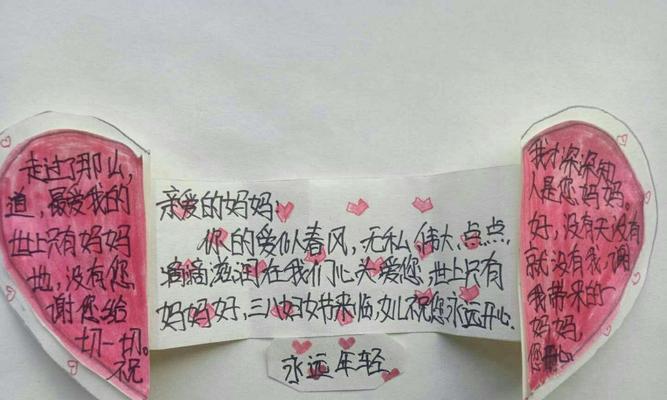 走过了那么,
道,最爱我的
世上只有妈妈
地,没有您
谢您给
切一切。
祝
亲爱的妈妈:
你的爱似春风,无私,伟大,点点,
滴滴滋润在我们心头爱您,世上只有
妈妈好,三八妇女节来临,女儿祝您永远开心.
永远年轻
我才深深知
人是您,妈妈。
好,没有天没有
就没有我,谢
我带来的一
妈妈
您开心